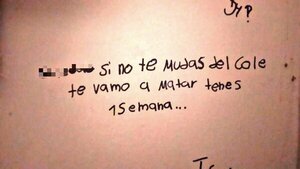 Dy?
Si no te Mudas del Cole
te vamo a Matar tenes
1 Semana...